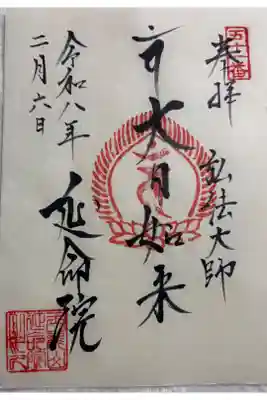 奉拝
弘法大師
大日如来
延命院
令和八年
二月六日